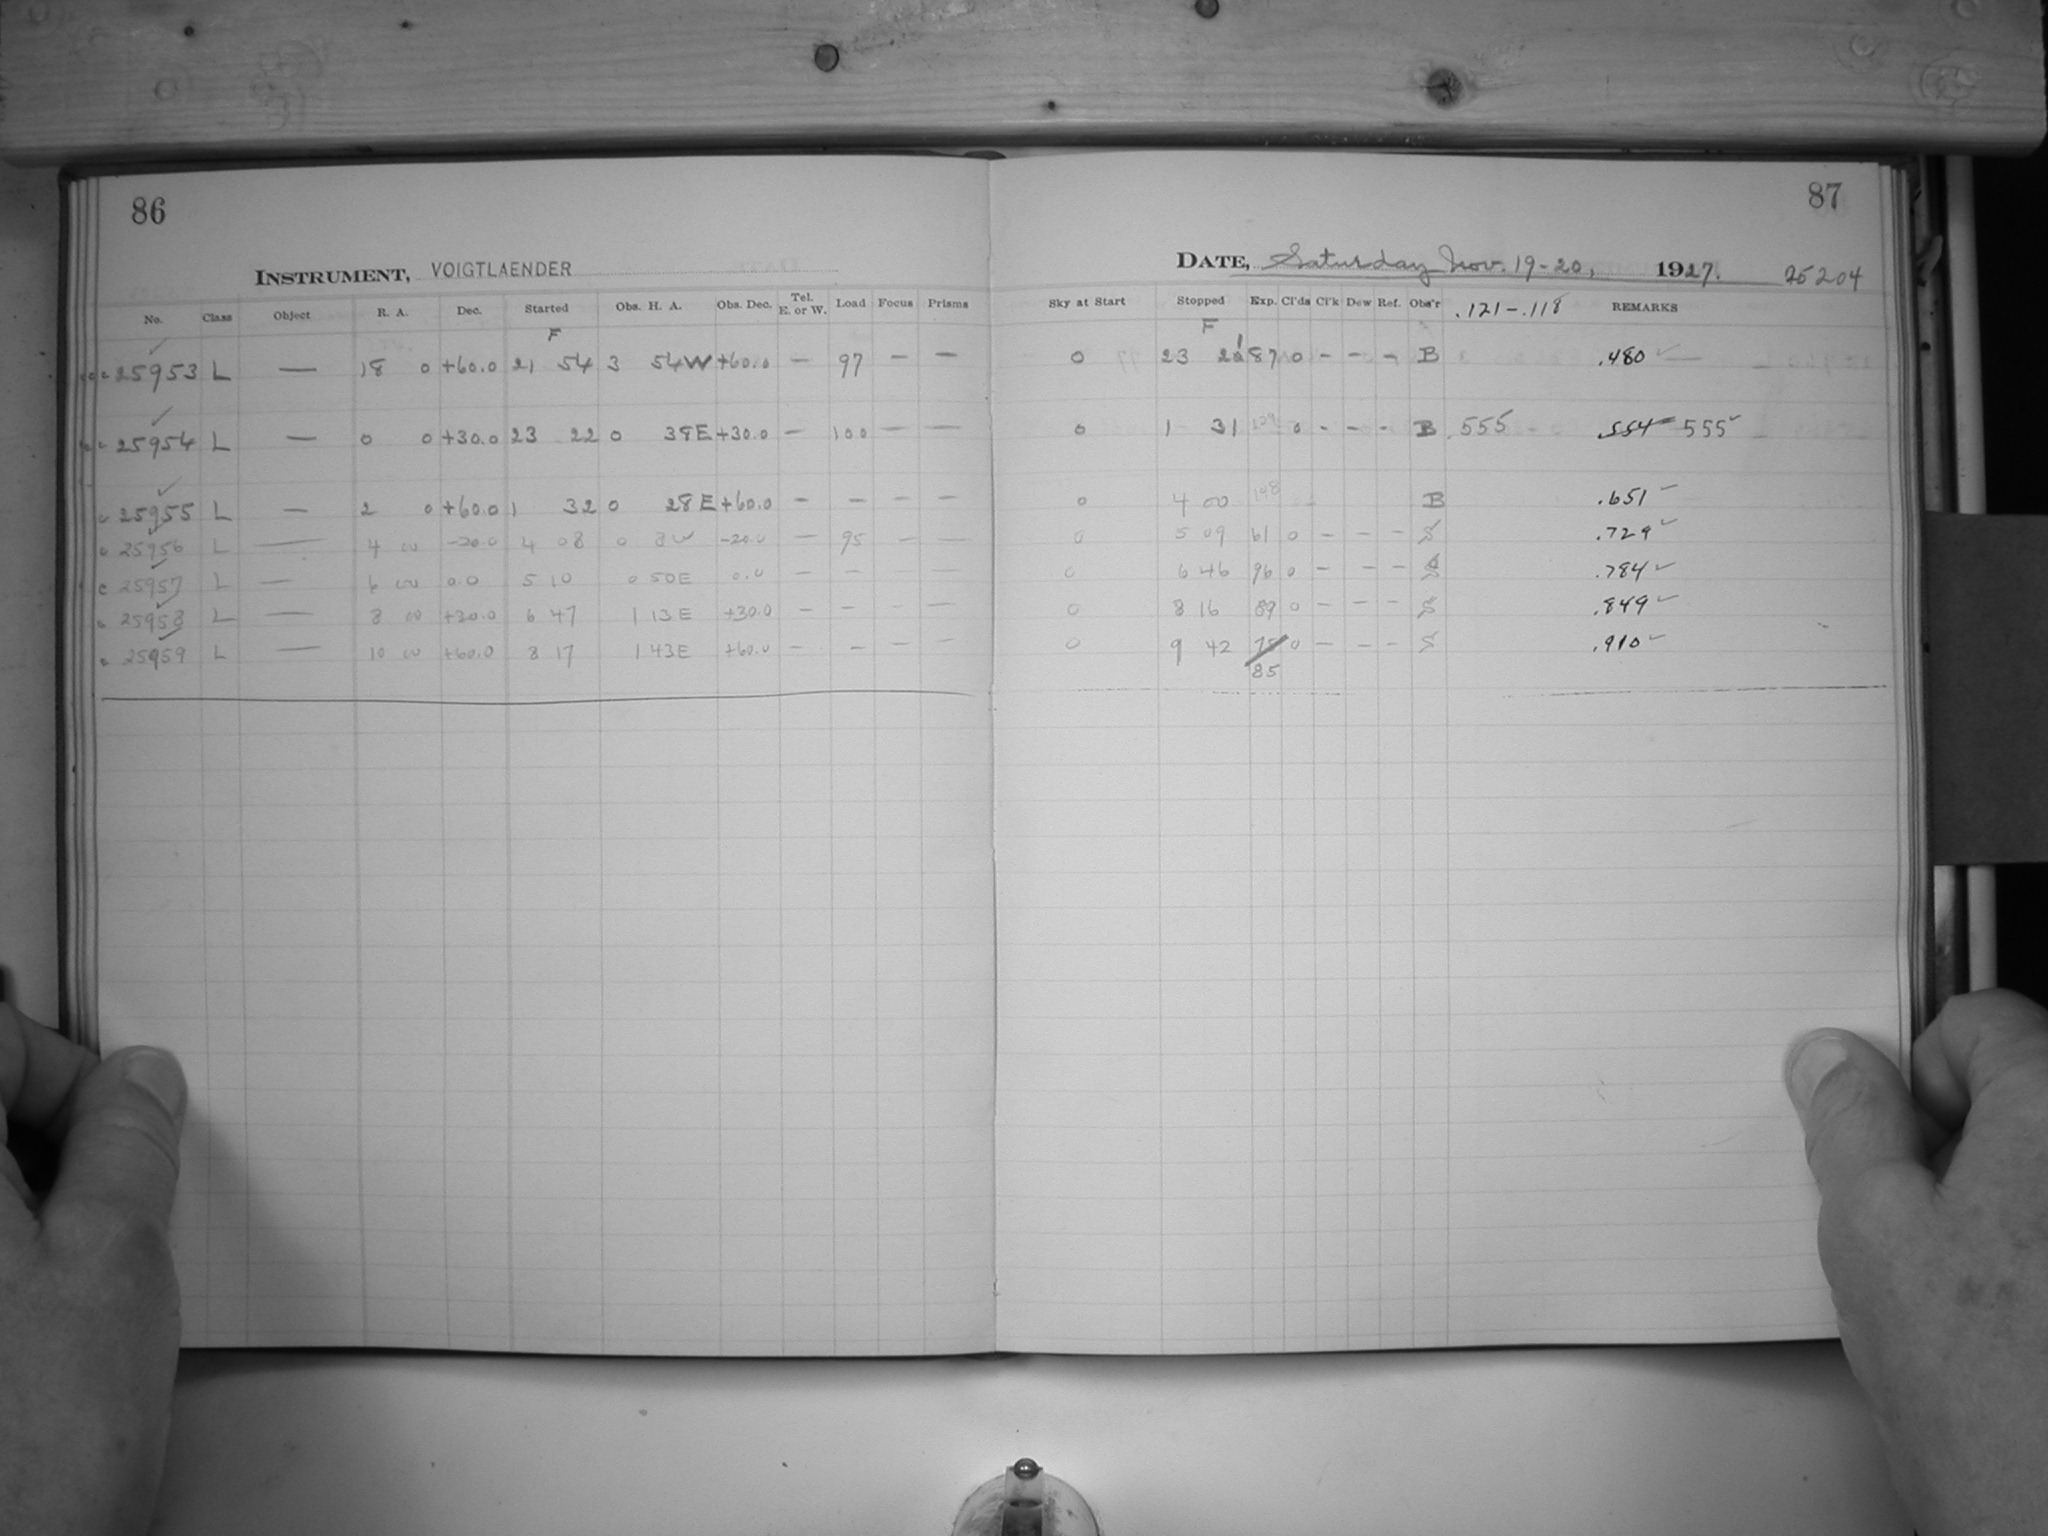 86
INSTRUMENT, VOIGTLAENDER
No. Class Object R. A. Dec. Started Obs. H. A. Obs. Dec. Tel. E. or W. Load Focus Prisms
F
25953 L — 18 0 +60.0 21 54 3 54W +60.0 — 97 — —
25954 L — 0 0 +30.0 23 22 0 38E +30.0 — 100 — —
25955 L — 2 0 +60.0 1 32 0 28E +60.0 — — — —
25956 L — 4 00 -30.0 4 08 0 8W -20.0 — 95 — —
25957 L — 6 00 0.0 5 10 0 50E 0.0 — — — —
25958 L — 8 00 +30.0 6 47 1 13E +30.0 — — — —
25959 L — 10 00 +60.0 8 17 1 43E +60.0 — — — —
87
DATE, Saturday Nov. 19-20, 1927. 25204
Sky at Start Stopped Exp. Cl'ds Cl'k Dew Ref. Obs'r .121-.118 REMARKS
F
0 23 21 87 0 - - - B .480
0 1 31 129 0 - - - B .555 .554 555
0 4 00 148 B .651
0 5 09 61 0 - - - S .729
0 6 46 96 0 - - - S .784
0 8 16 89 0 - - - S .849
0 9 42 75 0 - - - S .910
85